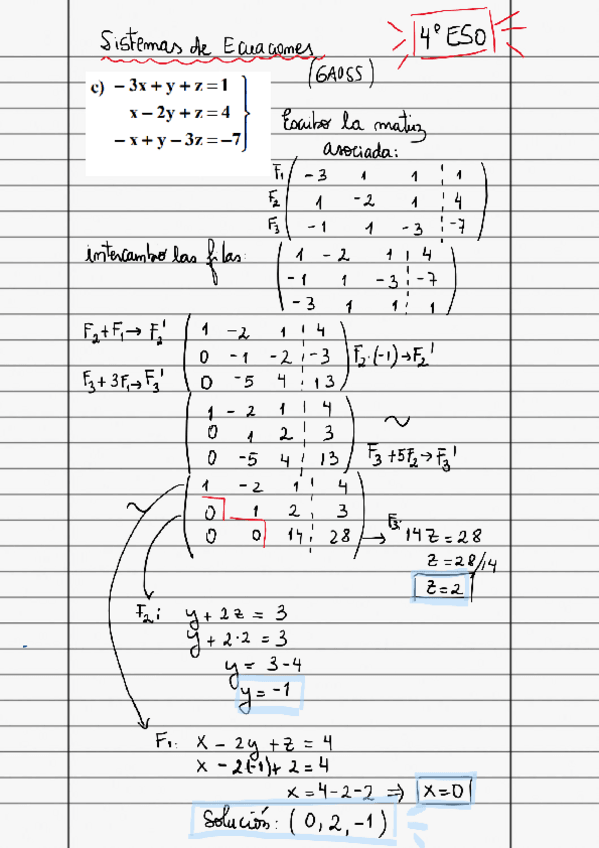 Sistemas de Ecuaciones
4º ESO
(GAUSS)
c) − 3x + y + z = 1
x − 2y + z = 4
− x + y − 3z = −7
Escribo la matriz
asociada:
F₁ -3 1 1 | 1
F₂ 1 -2 1 | 4
F₃ -1 1 -3 | -7
intercambio las filas:
1 -2 1 | 4
-1 1 -3 | -7
-3 1 1 | 1
F₂+F₁→F₂'
F₃+3F₁→F₃'
1 -2 1 | 4
0 -1 -2 | -3
0 -5 4 | 13
F₂·(-1)→F₂'
1 -2 1 | 4
0 1 2 | 3
0 -5 4 | 13
~
F₃+5F₂→F₃'
~
1 -2 1 | 4
0 1 2 | 3
0 0 14 | 28
→ F₃: 14z = 28
z = 28/14
z = 2
F₂: y + 2z = 3
y + 2·2 = 3
y = 3-4
y = -1
F₁: x - 2y + z = 4
x - 2(-1) + 2 = 4
x = 4-2-2 ⇒ x=0
Solución: (0, 2, -1)